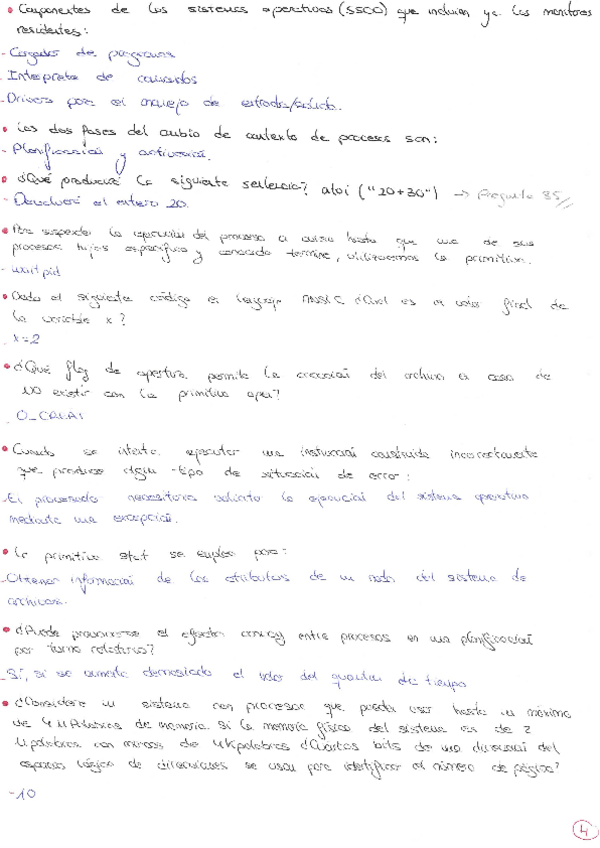 • Componentes de los sistemas operativos (SSOO) que incluían ya los monitores
residentes:
- Cargador de programas
- Intérprete de comandos
- Drivers para el manejo de entrada/salida.
• Las dos fases del cambio de contexto de procesos son:
- Planificación y activación.
• ¿Qué producirá la siguiente sentencia? atoi ("20+30") → Pregunta 85//
- Devolverá el entero 20.
• Para suspender la ejecución del proceso a curso hasta que uno de sus
procesos hijos específico y conocido termine, utilizaremos la primitiva.
- waitpid
• Dado el siguiente código en lenguaje ANSI C ¿Cuál es el valor final de
la variable x?
. x=2
• ¿Qué flag de apertura permite la creación del archivo en caso de
NO existir con la primitiva open?
. O_CREAT
• Cuando se intenta ejecutar una instrucción construida incorrectamente
que produce algún tipo de situación de error:
- El procesador necesitará solicitar la ejecución del sistema operativo
mediante una excepción.
• La primitiva stat se emplea para:
- Obtener información de los atributos de un nodo del sistema de
archivos.
• ¿Puede producirse el efecto convoy entre procesos en una planificación
por turno rotatorio?
- Sí, si se aumenta demasiado el valor del quantum de tiempo
• ¿Considere un sistema con procesos que pueden usar hasta un máximo
de 4 Mpalabras de memoria. Si la memoria física del sistema es de 2
Mpalabras con marcos de 4Kpalabras ¿Cuántos bits de una dirección del
espacio lógico de direcciones se usan para identificar el número de página?
- 10
4